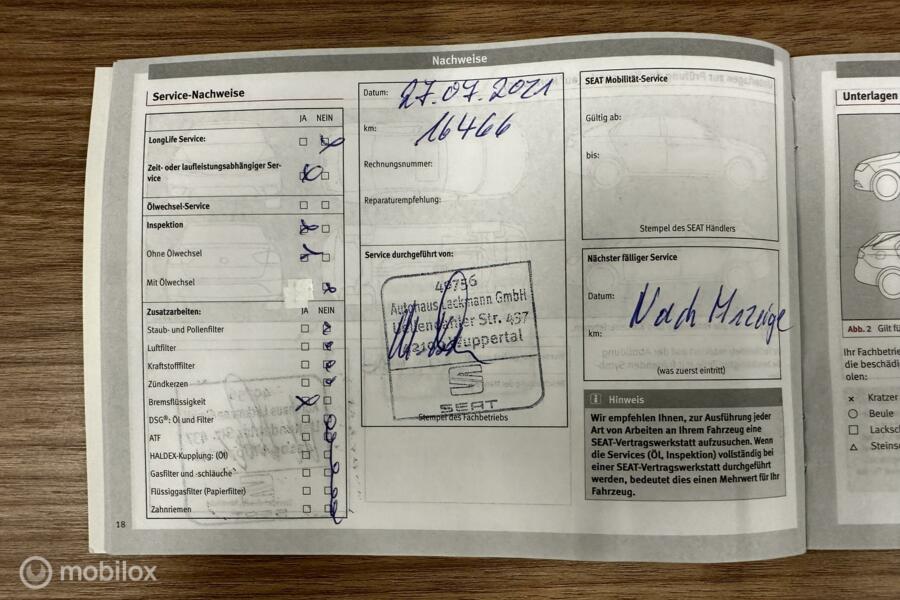 Nachweise
Service-Nachweise
JA NEIN
LongLife Service:
Zeit- oder laufleistungsabhängiger Ser-
vice
Ölwechsel-Service
Inspektion
Ohne Ölwechsel
Mit Ölwechsel
Zusatzarbeiten: JA NEIN
Staub- und Pollenfilter
Luftfilter
Kraftstofffilter
Zündkerzen
Bremsflüssigkeit
DSG®: Öl und Filter
ATF
HALDEX-Kupplung: (Öl)
Gasfilter und -schläuche
Flüssiggasfilter (Papierfilter)
Zahnriemen
18
Datum: 27.07.2021
km: 16466
Rechnungsnummer:
Reparaturempfehlung:
Service durchgeführt von:
Autohaus Lackmann GmbH
Str. 437
Wuppertal
SEAT
Stempel des Fachbetriebs
SEAT Mobilität-Service
Gültig ab:
bis:
Stempel des SEAT Händlers
Nächster fälliger Service
Datum:
Nach Anzeige
km:
(was zuerst eintritt)
Hinweis
Wir empfehlen Ihnen, zur Ausführung jeder
Art von Arbeiten an Ihrem Fahrzeug eine
SEAT-Vertragswerkstatt aufzusuchen. Wenn
die Services (Öl, Inspektion) vollständig bei
einer SEAT-Vertragswerkstatt durchgeführt
werden, bedeutet dies einen Mehrwert für Ihr
Fahrzeug.
Unterlagen
Abb. 2 Gilt fü
Ihr Fachbetrie
die beschädi
olen:
Kratzer
Beule
Lacksch
Steins
mobilox